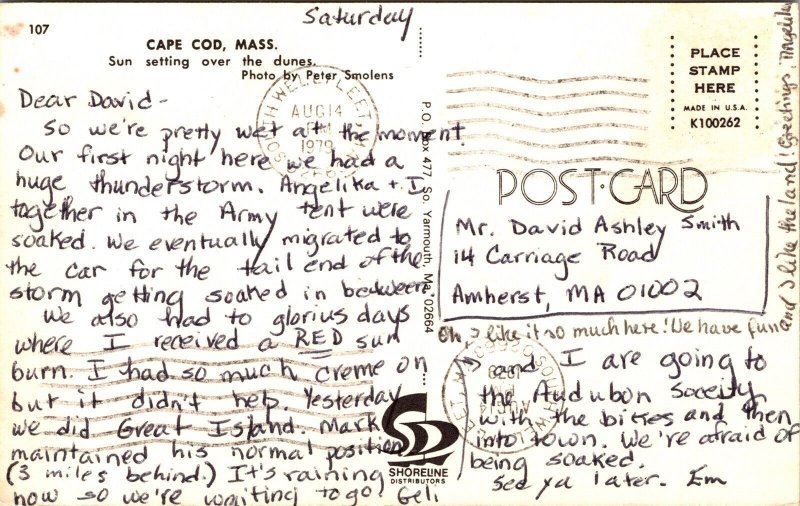 Saturday
107
CAPE COD, MASS.
Sun setting over the dunes.
Photo by Peter Smolens
Dear David-
So we're pretty wet att the moment.
Our first night here we had a
huge thunderstorm. Angelika + I
together in the Army tent were
soaked. We eventually migrated to
the car for the tail end of the
storm getting soaked in between.
We also had to glorius days
where I received a RED sun
burn. I had so much creme on
but it didn't help. Yesterday
we did Great Island. Mark
maintained his normal position
(3 miles behind.) It's raining
now so we're waiting to go. Geli
and I are going to
the Audubon Soceity
with the bikes and then
into town. We're afraid of
being soaked.
See ya later. Em
P.O. Box 477, So. Yarmouth, Ma. 02664
SHORELINE
DISTRIBUTORS
AUG 14
PM
1979
PLACE
STAMP
HERE
MADE IN U.S.A.
K100262
POST CARD
Mr. David Ashley Smith
14 Carriage Road
Amherst, MA 01002
Oh, I like it so much here! We have fun
and I like the land! Greetings, Angelika